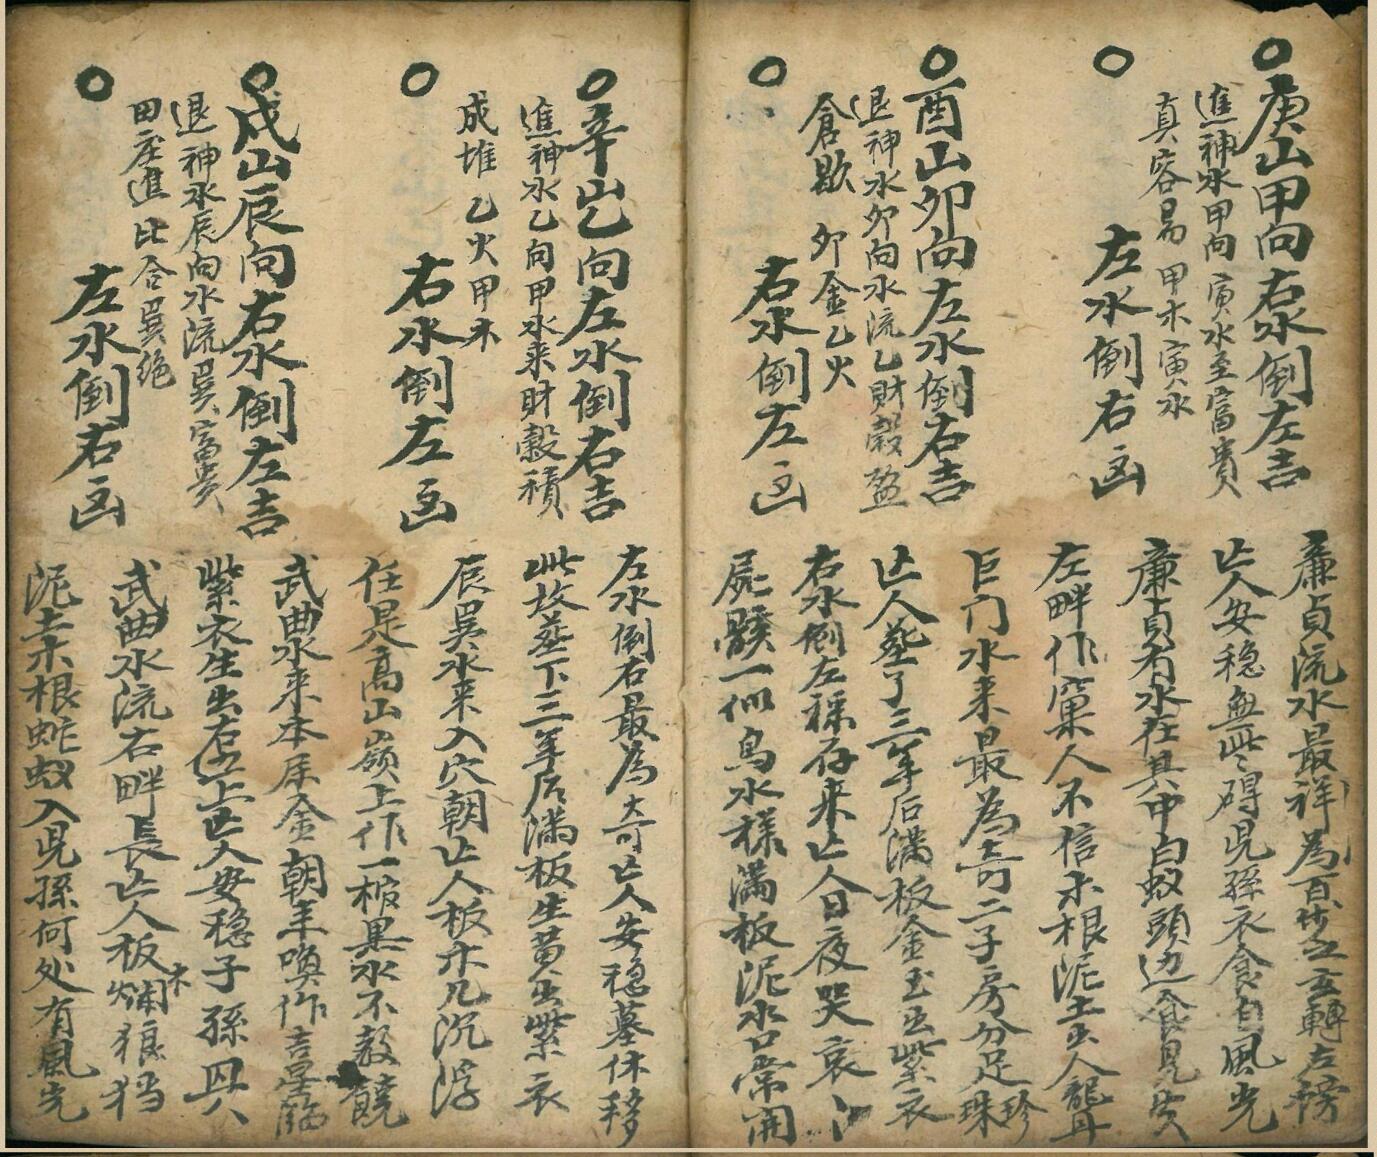 庚山甲向右水倒左吉
進神水甲向寅水至富貴
真容易 甲木寅水
左水倒右凶
酉山卯向左水倒右吉
退神水卯向水流乙財穀盈
倉歇 卯金乙火
右水倒左凶
辛山乙向左水倒右吉
進神水乙向甲水来財穀積
成堆 乙火甲木
右水倒左凶
戍山辰向右水倒左吉
退神水辰向水流巽富貴
田庄進 比合巽绝
左水倒右凶
廉貞流水最祥為百步之玄轉左榜
亡人安稳無些碍児孫衣食有風光
廉貞有水在其中白蚁頭边食見
左畔作窠人不信木根泥土出人
巨门水来最為奇二子房分足珍珠
亡人塟了三年后满板金玉出紫衣
右水倒左禄存来亡人日夜哭哀
屍骸一似鳥水樣满板泥水口常開
左水倒右最為奇亡人安稳墓休移
此坟塟下三年后满板生黄出紫衣
辰巽水来入穴朝亡人板木几沉浮
任是高山嶺上作一棺黑水不
武曲水来本属金朝羊喚作吉星臨
紫衣生出右位上亡人安稳子孫
武曲水流右畔長亡人板木爛
泥土木根蚁入児孫何处有風光